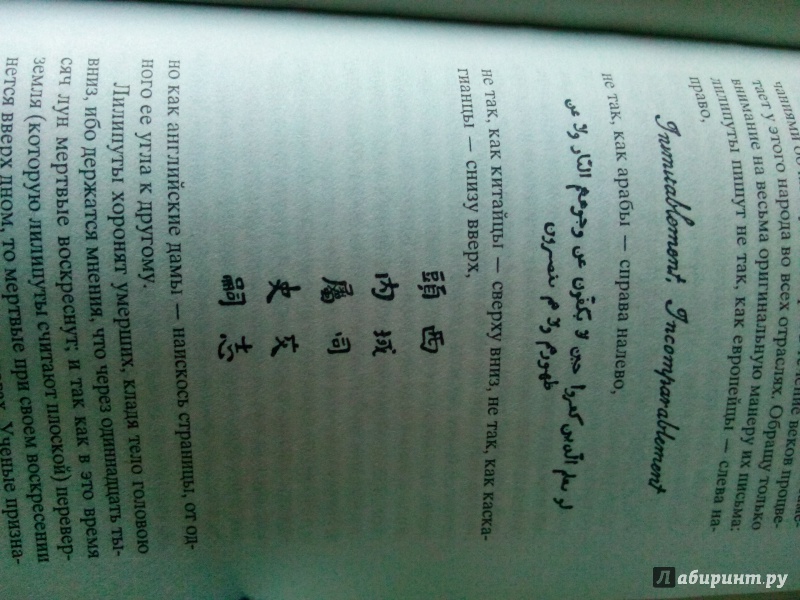 чение веков процве-
тает у этого народа во всех отраслях. Обращу только
внимание на весьма оригинальную манеру их письма:
лилипуты пишут не так, как европейцы — слева на-
право,
Inimitablement, Incomparablement
не так, как арабы — справа налево,
لو يعلم الذين كفروا حين لا يكفون عن وجوههم النار ولا عن
ظهورهم ولا هم ينصرون
не так, как китайцы — сверху вниз, не так, как каска-
гианцы — снизу вверх,
西域同文志
頭内屬史嗣
но как английские дамы — наискось страницы, от од-
ного ее угла к другому.
Лилипуты хоронят умерших, кладя тело головою
вниз, ибо держатся мнения, что через одиннадцать ты-
сяч лун мертвые воскреснут; и так как в это время
земля (которую лилипуты считают плоской) перевер-
нется вверх дном, то мертвые при своем воскресении
Ученые призна-
Лабиринт.ру